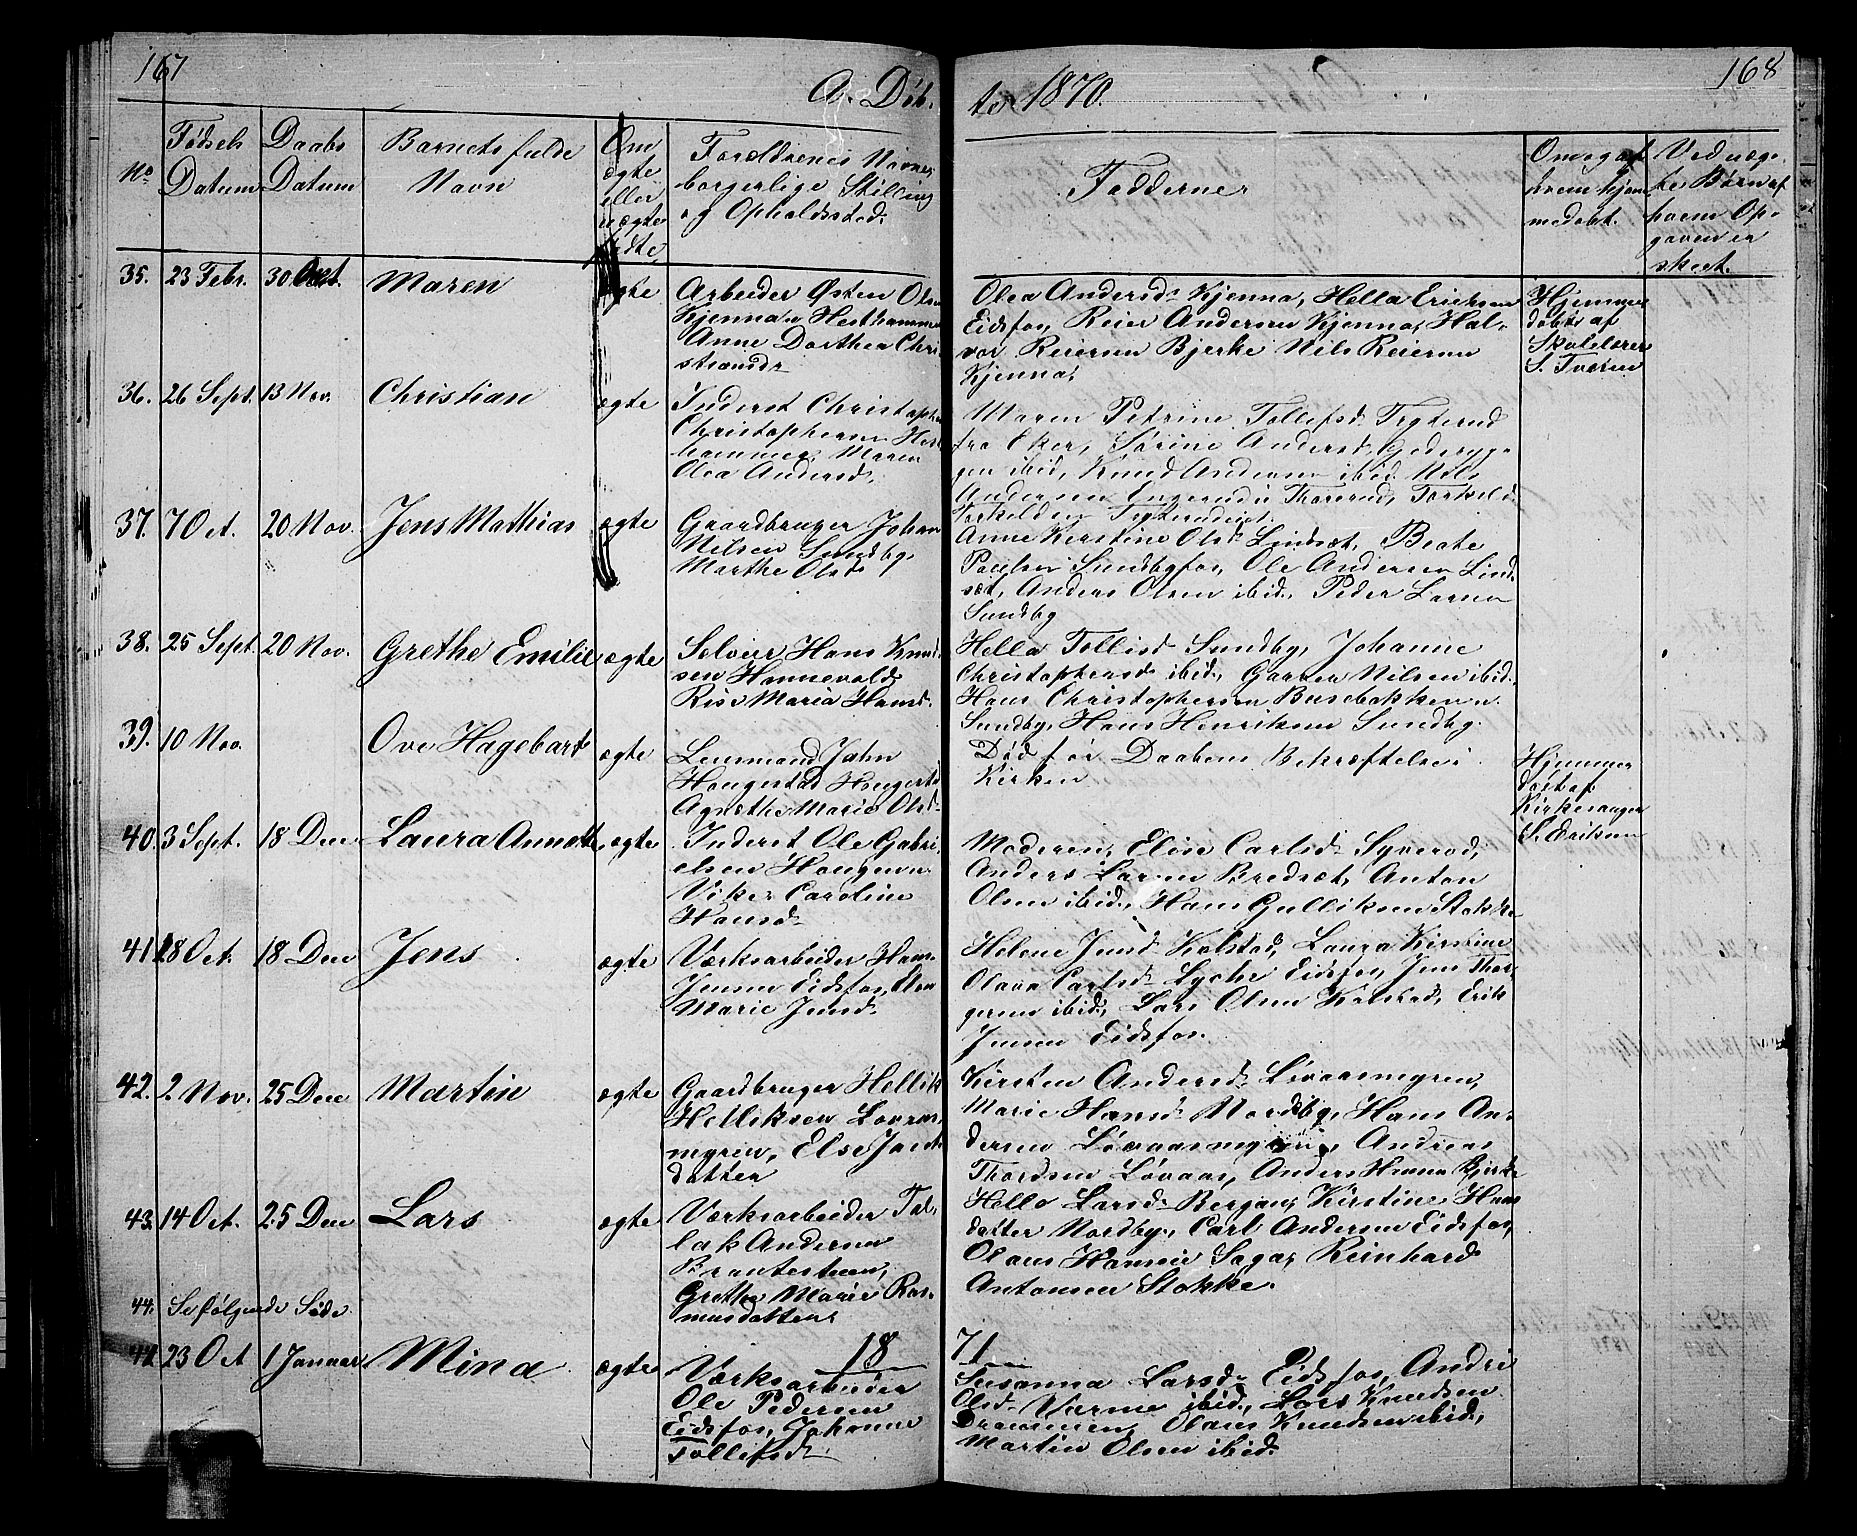 167
168
A. Døb-
te 1870.
No
Fødsels
Datum
Daabs
Datum
Barnets fulde
Navn
Om
ægte
eller
uægte
fødte
Forældrenes Navne,
borgerlige Stilling
og Opholdssted.
Fadderne.
Om og af
hvem hjem-
medøbt.
Ved uæg-
te Børn af
hvem Op-
gaven er
skeet.
35. 23 Febr. 30 Oct. Maren ægte
Arbeider Østen Olsen
Kjenna v Hesthammer
Anne Dorthea Chri-
stiansd.
Olea Andersd. Kjenna, Hella Eriksen
Eidsfos, Reier Andersen Kjenna, Hal-
vor Reiersen Bjerke Nils Reiersen
Kjenna.
Hjemme
døbt af
Skolelærer
S. Tveren
36. 26 Sept. 13 Nov. Christian ægte
Inderst Christopher
Christophersen Hest-
hammer, Maren
Olea Andersd.
Maren Petrine Tollefsd. Frygterud
fra Eker, Sørine Andersd. Gederyg-
gen ibid, Knud Andersen ibid. Nils
Andersen Ingerud i Thorerud, Torkild
Torkildsen
37. 7 Oct. 20 Nov. Jens Mathias ægte
Gaardbruger Johan
Nilsen Sundby,
Marthe Olsd.
Anne Kirstine Olsd. Lindsæt, Beate
Paulsen Sundbyfos, Ole Andersen Lind-
sæt, Anders Olsen ibid, Peder Larsen
Sundby
38. 25 Sept. 20 Nov. Grethe Emilie ægte
Selveier Hans Knud-
sen Hannevold,
Risi Maria Hansd.
Hella Tollisd. Sundby, Johanne
Christophersd. ibid, Garner Nilsen ibid.
Hans Christophersen Busebakken u.
Sundby, Hans Henriksen Sundby.
39. 10 Nov. Ove Hagebart ægte
Lensmand Jahn
Haugestad Haugerts
Agnethe Marie Olsd.
Død før Daabens Bekræftelse i
Kirken
Hjemme
døbt af
Kirkesanger
S. Eriksen
40. 3 Sept. 18 Dec. Laura Annette ægte
Inderst Ole Gabri-
elsen Haugen u.
Viker Caroline
Hansd.
Moderen, Elise Carlsd. Syverød,
Anders Larsen Bredsæt, Anton
Olsen ibid, Hans Gulliksen Stokke
41. 18 Oct. 18 Dec Jens ægte
Værksarbeider Hans
Jensen Eidsfos, Elen
Marie Jensd.
Helene Jensd. Kolstad, Laura Kirstine
Olava Carlsd. Lyche Eidsfos, Jens Thor-
gersen ibid, Lars Olsen Kolstad, Erik
Jensen Eidsfos.
42. 2 Nov. 25 Dec Martin ægte
Gaardbruger Hellik
Helliksen Lovaas-
myren, Else Jacobs-
datter
Kirsten Andersd. Løvaasmyren,
Marie Hansd. Nordby, Hans An-
dersen Løvaasmyren, Andreas
Thordsen Løvaas, Anders Hansen Bjerke
43. 14 Oct. 25 Dec Lars ægte
Værksarbeider Tol-
lak Andersen
Brantesteen,
Grethe Marie Ras-
musdatter.
Helle Larsd. Bergan, Kirstine Hans
datter Nordby, Carl Andersen Eidsfos,
Olaus Hansen Saga, Reinhard
Antonsen Stokke.
44. Se følgende Side.
18
71
44. 23 Oct 1 Januar Mina ægte
Værksarbeider
Ole Pedersen
Eidsfos, Johanne
Tollefsd.
Susanna Larsd. Eidsfos, Andri
Olsd. Varme ibid, Lars Knudsen
Drammen, Olaus Knudsen ibid,
Martin Olsen ibid.